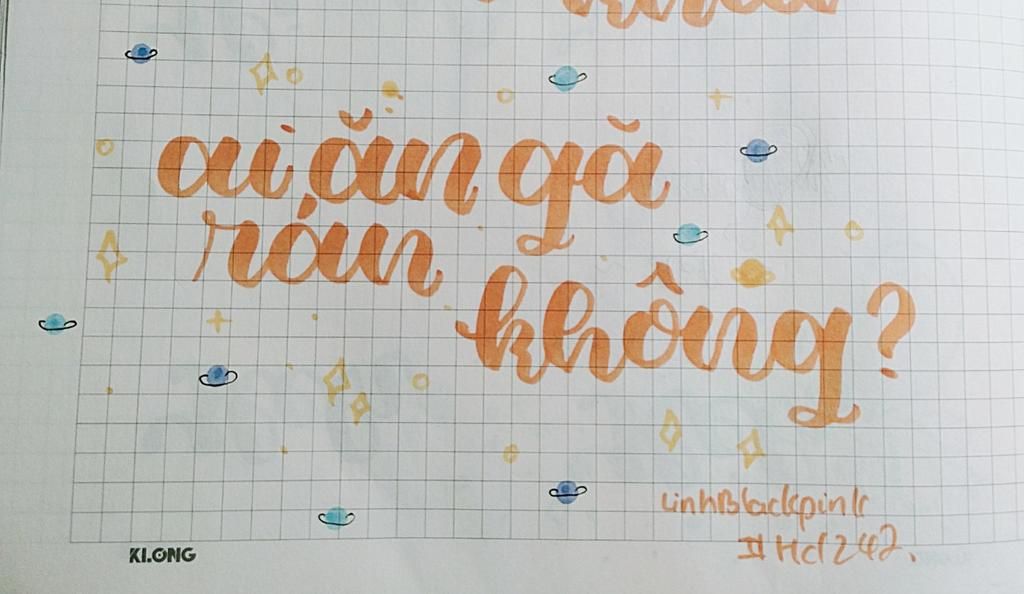 ai ăn gă
rán
không?
LinhBlackpink
IIHd242.
KLONG